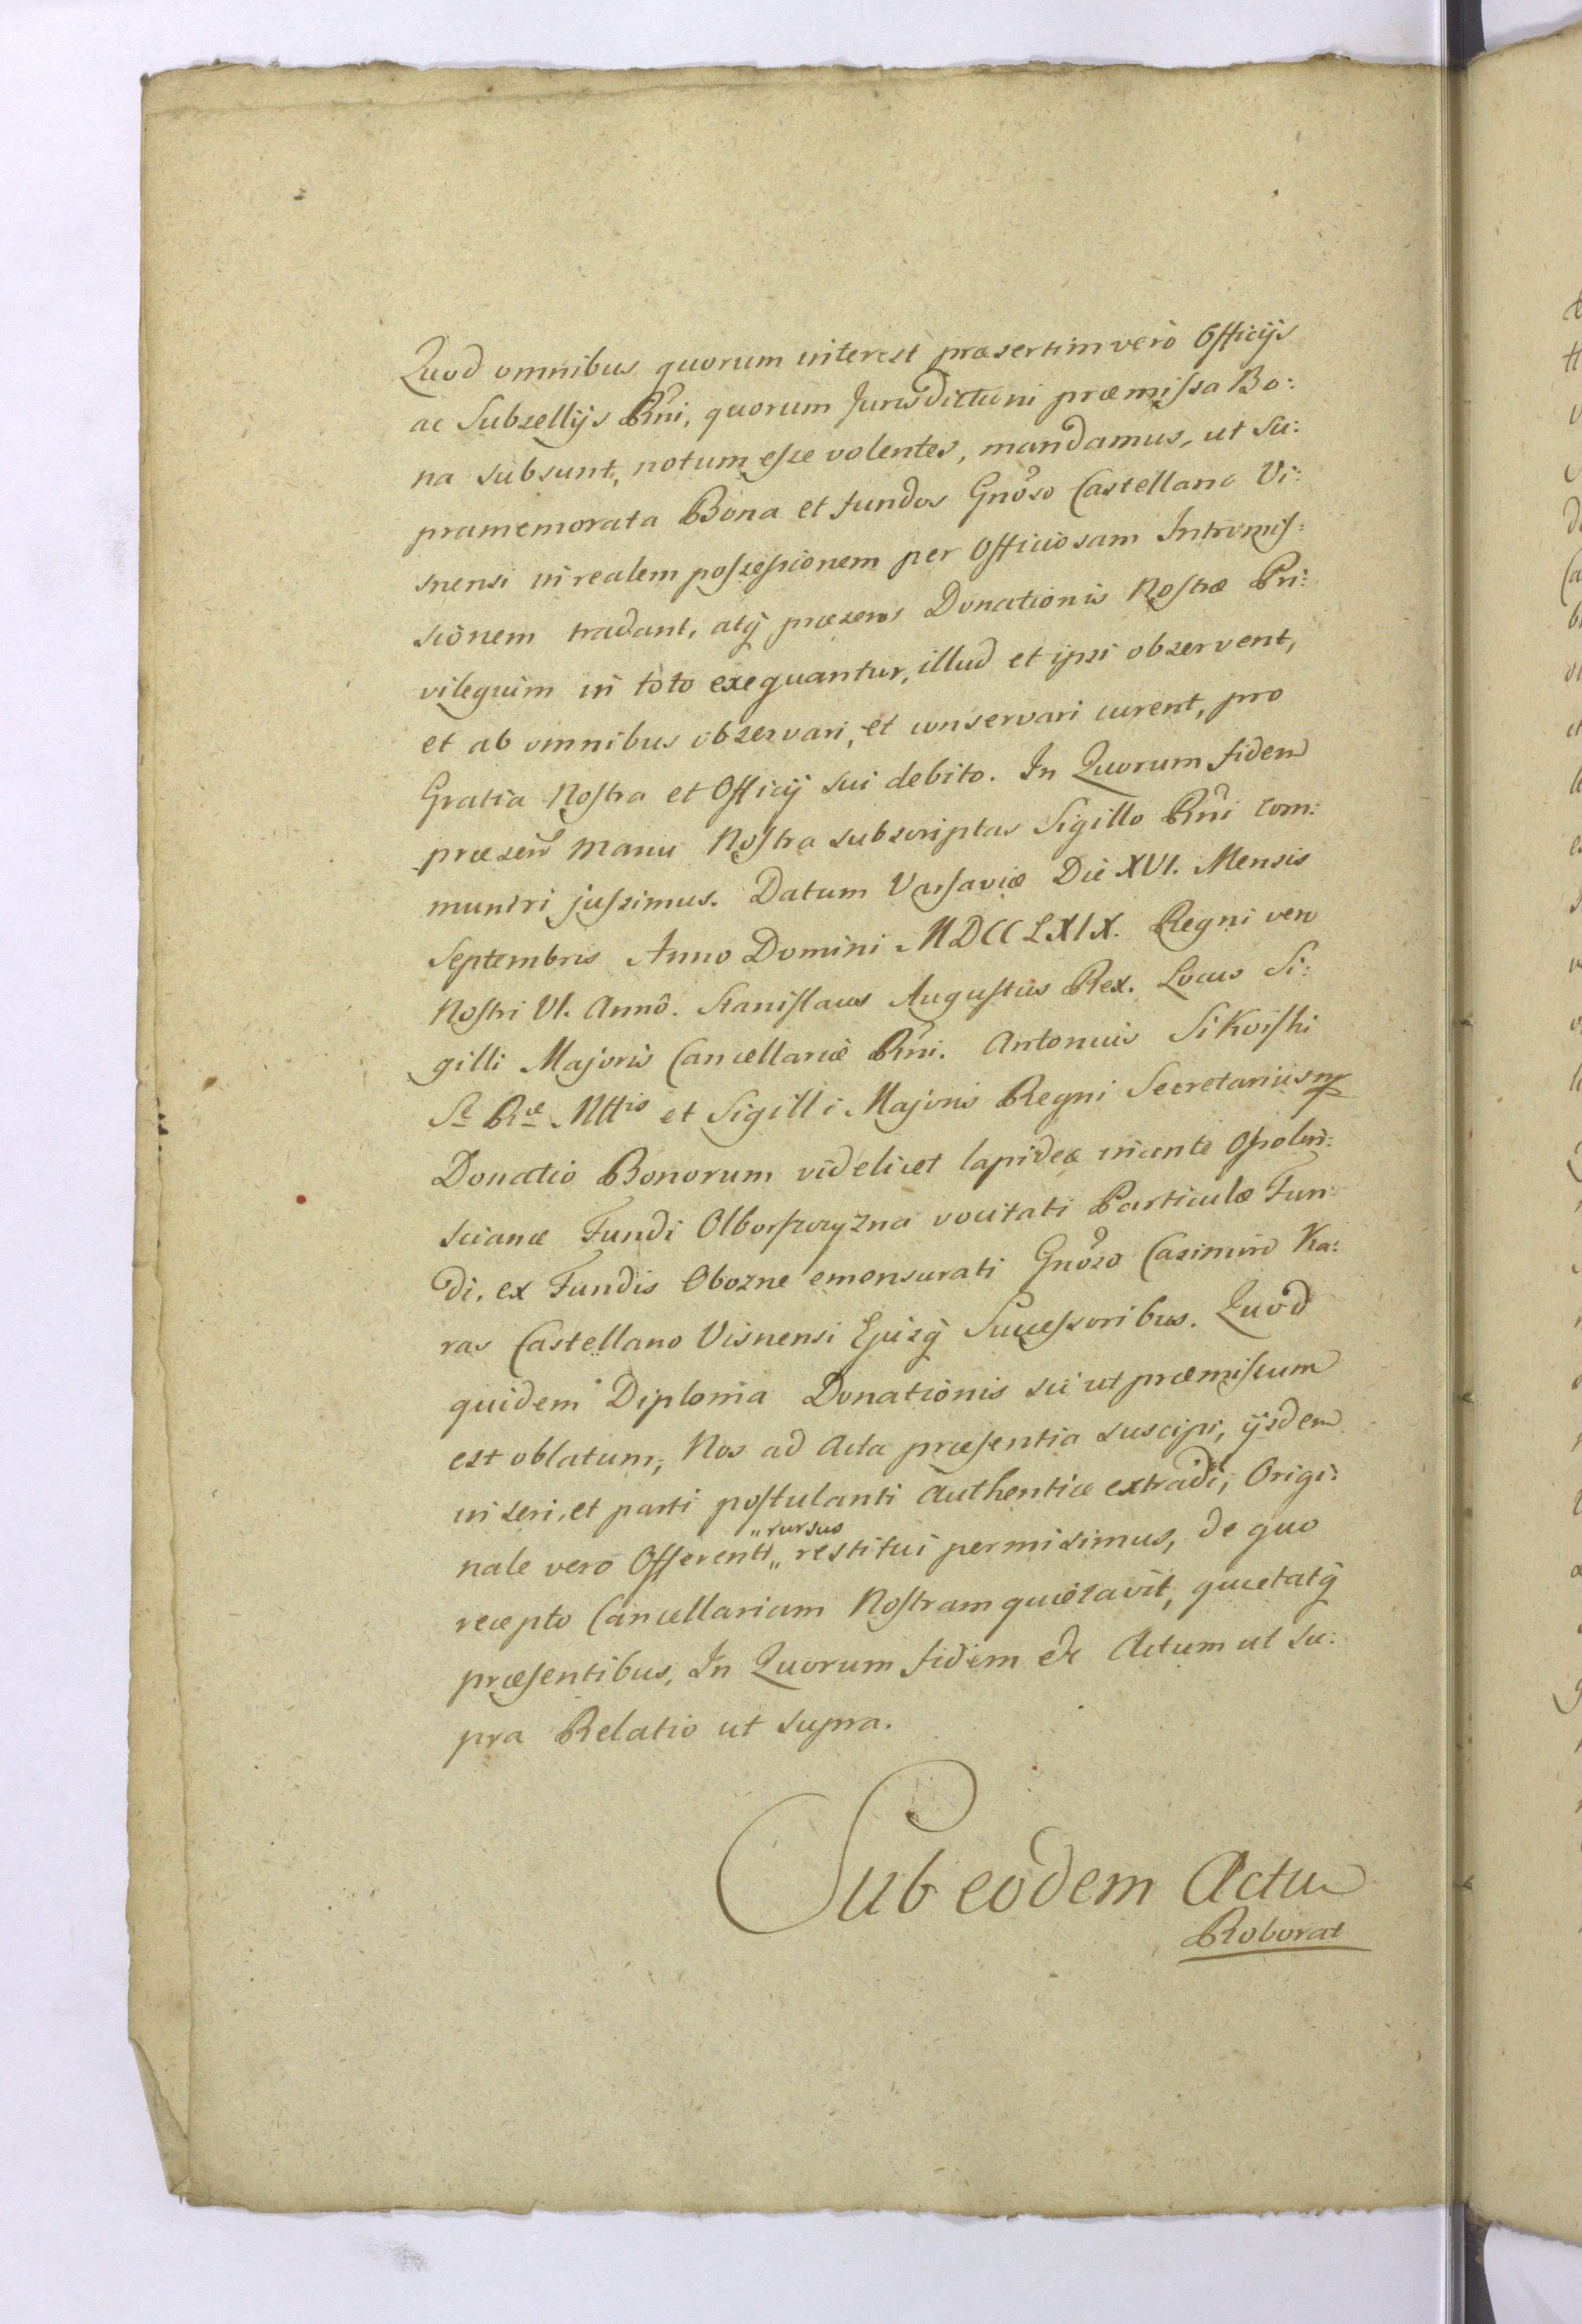 Quod omnibus quorum interest præsertim verò Officijs
ac Subsellijs Rñi, quorum Jurisdictioni præmissa Bo:
na subsunt, notum esse volentes, mandamus, ut su:
pramemorata Bona et fundos Gnoso Castellano Vi:
snensi in realem possessionem per Officiosam Intromis:
sionem tradant, atq̃ præsens Donationis Nostræ Pri:
vilegium in toto exequantur, illud et ipsi observent,
et ab omnibus observari, et conservari curent, pro
Gratia Nostra et Officij sui debito. In Quorum fidem
præsens manu Nostra subscriptas Sigillo Rñi com:
muniri jussimus. Datum Varsaviæ Die XVI. Mensis
Septembris Anno Domini MDCCLXIX. Regni vero
Nostri VI. Annô. Stanislaus Augustus Rex. Locus Si:
gilli Majoris Cancellariæ Rñi. Antonius Sikorski
Sæ Ræ Mttis et Sigilli Majoris Regni Secretarius mp
Donatio Bonorum videlicet lapideæ incente Opolen:
scianæ Fundi Olborszczyzna vocitati Particulæ Fun
di, ex Fundis Obozne emensurati Gnoso Casimiro Ka:
ras Castellano Visnensi Ejusq̃ Successoribus. Quod
quidem Diploma Donationis sic ut præmissum
est oblatum, Nos ad Acta præsentia suscipi, ijsdem
inseri, et parti postulanti authentice extradi, Origi:
nale vero Offerenti „rursus„ restitui permisimus, de quo
recepto Cancellariam Nostram quietavit, quietatq̃
præsentibus, In Quorum fidem etc Actum ut su:
pra Relatio ut supra.
Sub eodem Actu
Roborat